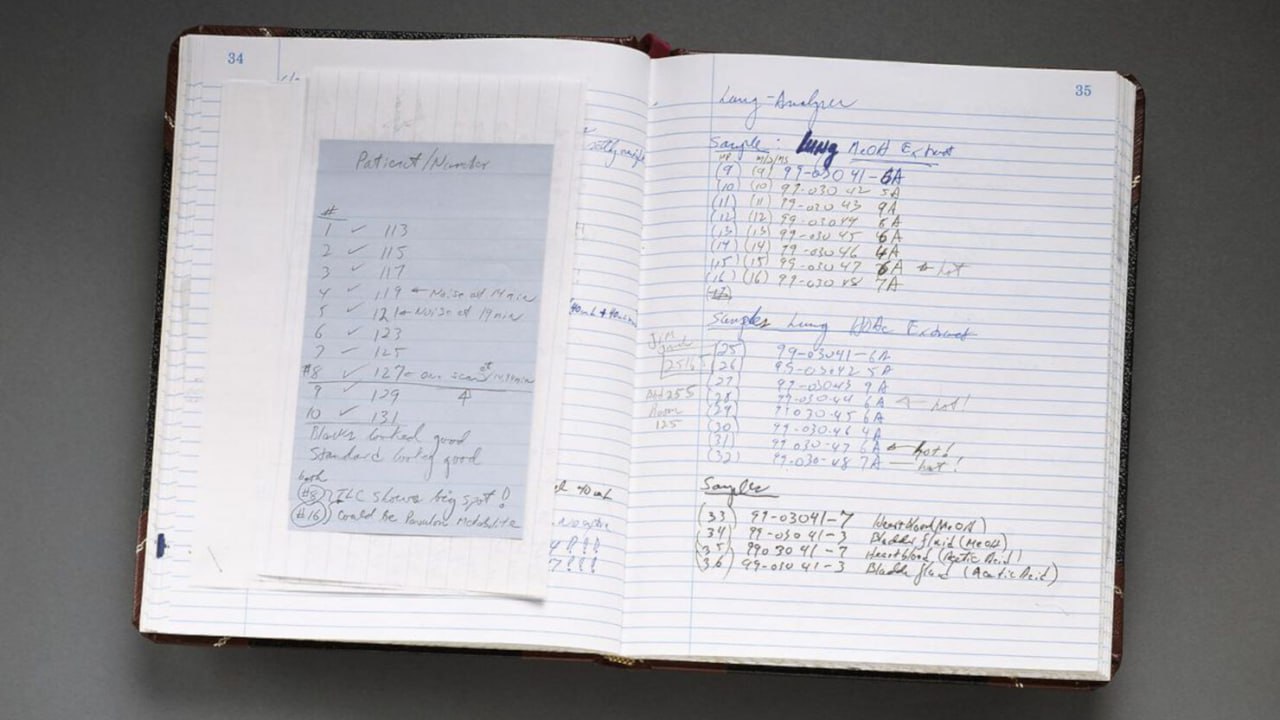 34
Patient/Number
#
1 ✓ 113
2 ✓ 115
3 ✓ 117
4 ✓ 119 ← Noise at 14 min
5 ✓ 121 ← Noise at 19 min
6 ✓ 123
7 ✓ 125
#8 ✓ 127 ← our scan at
9 ✓ 129
10 ✓ 131
Blanks looked good
Standard looked good
both
(#8) TLC shows big spot!
(#16) Could Be Pavulon Metabolite
35
Lung-Analyses
Sample: Lung MeOH Extract
(9) (9) 99-03041-6A
(10) (10) 99-03042 5A
(11) (11) 99-03043 9A
(12) (12) 99-03044 6A
(13) (13) 99-03045 6A
(14) (14) 99-03046 4A
(15) (15) 99-03047 6A ← hot
(16) (16) 99-03048 7A
(17)
Samples Lung HOAc Extract
(25) 99-03041-6A
(26) 99-03042 5A
(27) 99-03043 9A
(28) 99-03044 6A ← hot!
(29) 99-03045 6A
(30) 99-03046 4A
(31) 99-030-47 6A ← hot!
(32) 99-030-48 7A — hot!
Room
125
Samples
(33) 99-03041-7 Heart blood (MeOH)
(34) 99-03041-3 Bladder fluid (MeOH)
(35) 99-03041-7 Heart blood (Acetic Acid)
(36) 99-03041-3 Bladder fluid (Acetic Acid)